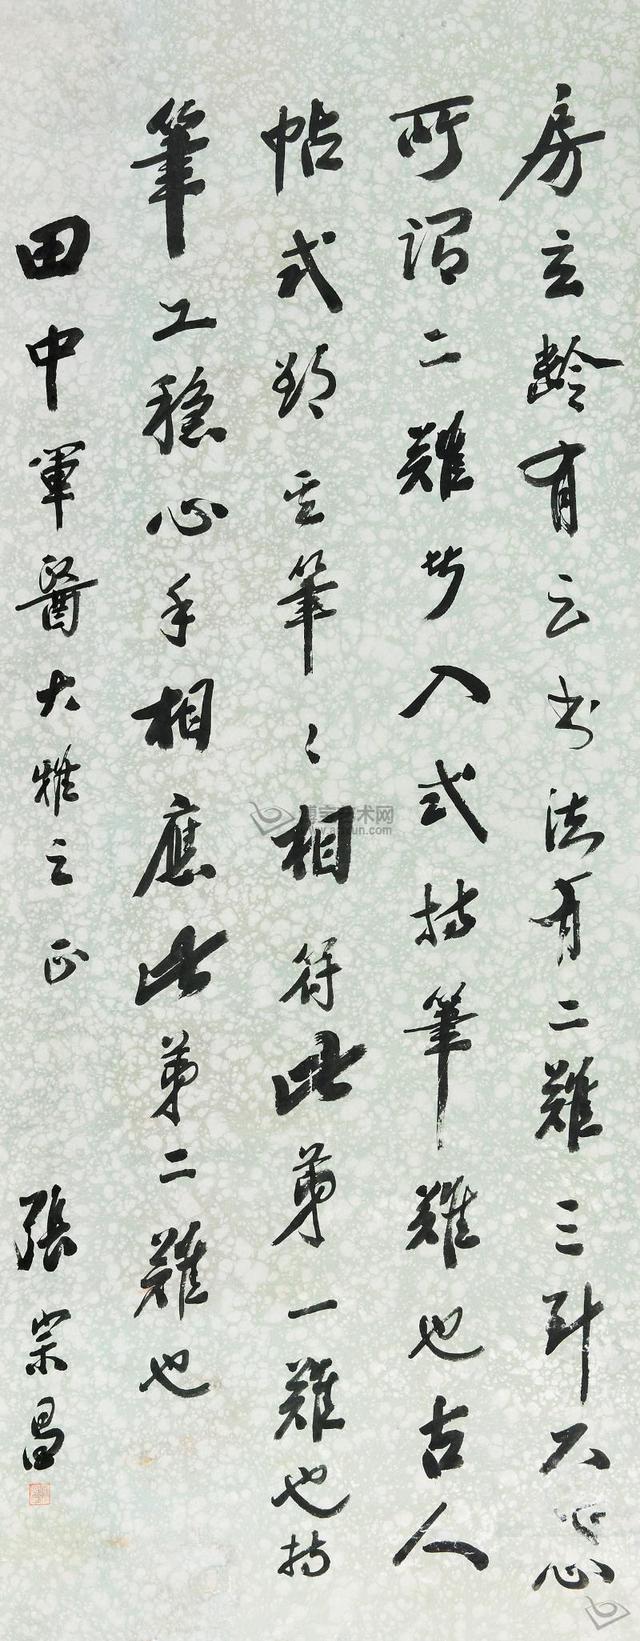 房玄齡有云书法有二難三不
所謂二難入式持筆難也古人
帖式筆〻相符此第一難也持
筆工穩心手相應此第二難也
田中軍醫大雅之正
張宗昌
博宝艺术网
artxun.com